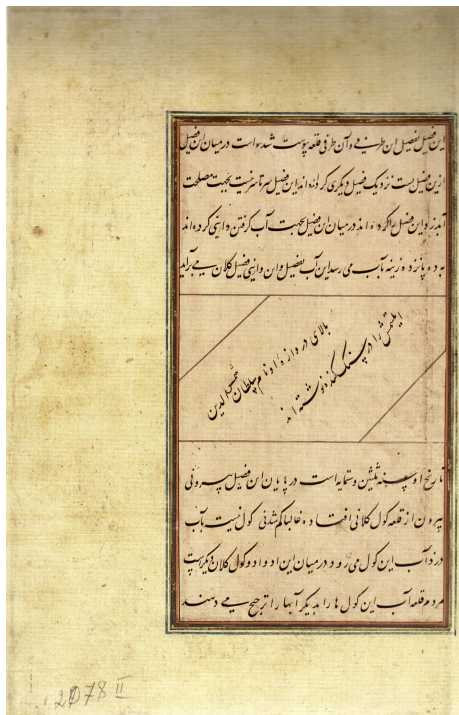 این فصیل بفصیل این طرفی و آن طرفی قلعه پیوست شده است درمیان این فصیل
ازین فصیل پست نزدیک فصیل دیگری کردانده اند این فصیل سرتاسر نیست بجهت مصلحت
آبدزد این فصیل را کرده اند درمیان این فصیل بجهت آب کرفتن وایینی کرده اند
به ده پانزده زینه بآب می رسد این آب بفصیل و ان وایین فصیل کلان می برآید
بالای دروازه او نام سلطان شمس الدین
ایلتمش را در سنک کنده نوشته اند
تاریخ او سنه ثلثین و ستمایه است در پایان این فصیل بیرونی
بیرون از قلعه کول کلانی افتاده غالبا کم شدنی کول نیست بآب
درد آب این کول می رود درمیان این اوا دو کول کلان دیکر هست
مردم قلعه آب این کول ها را بدیکر آبها را ترجیح می دهند
2078 II